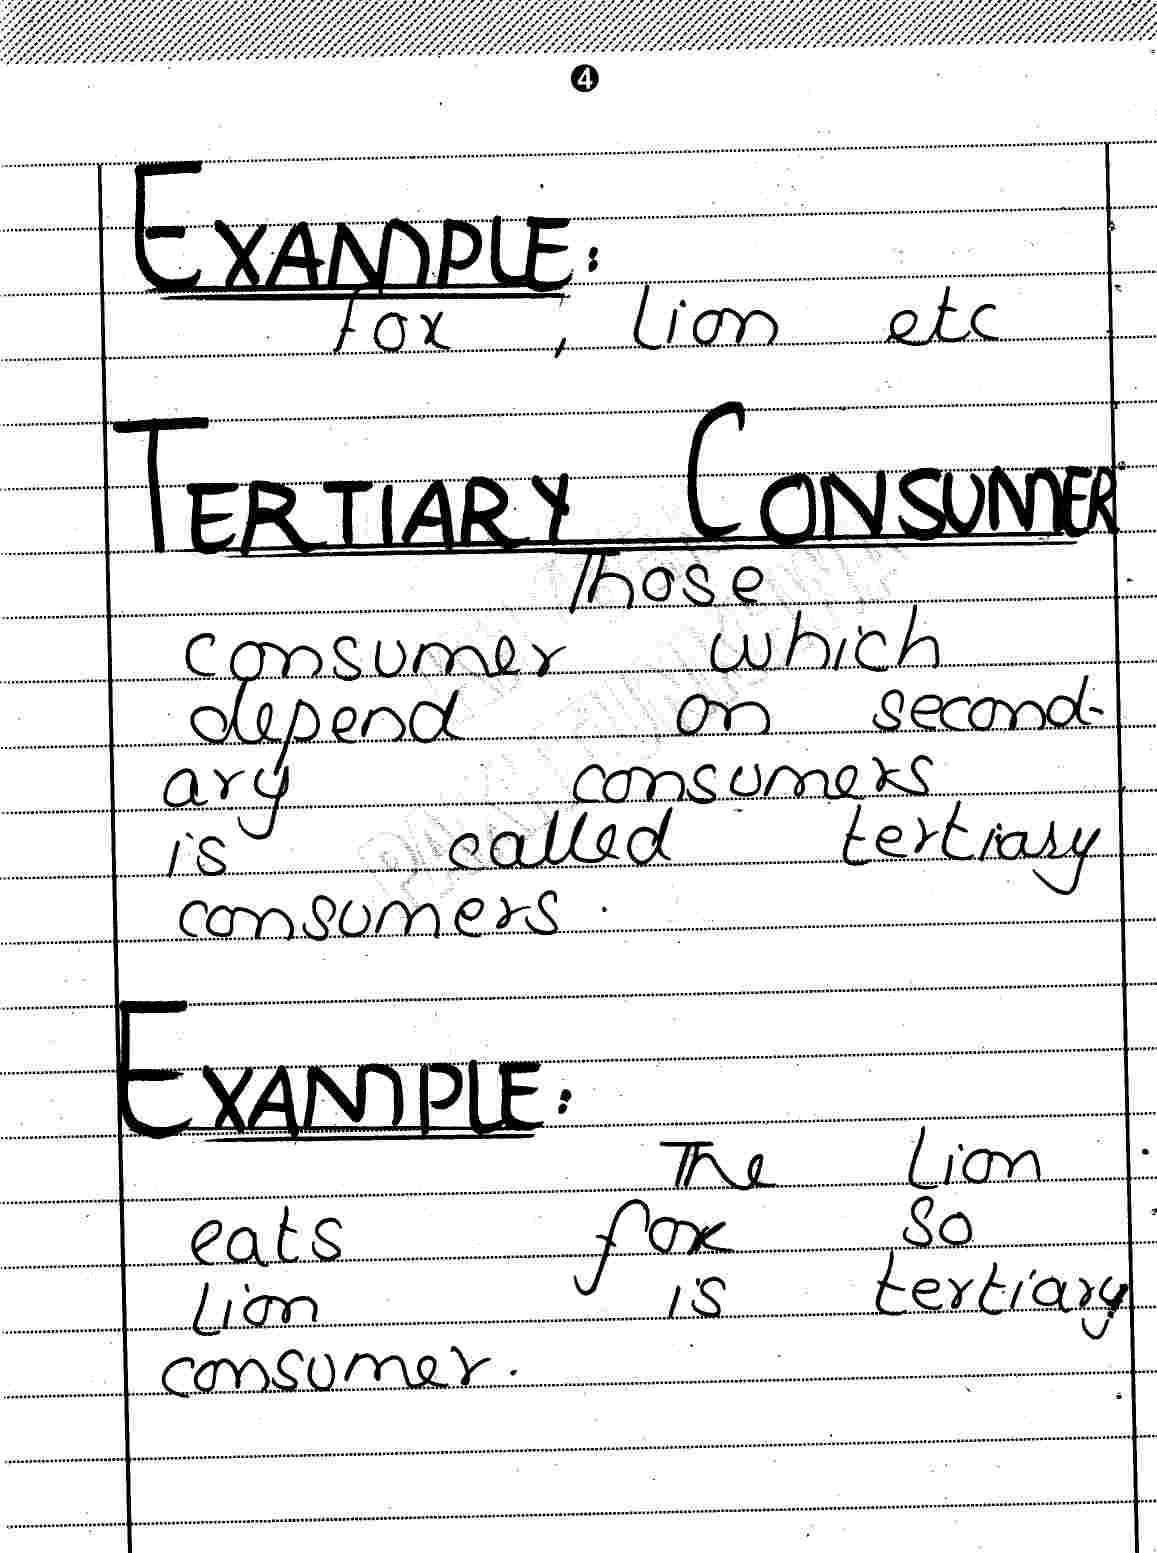 4
EXAMPLE:
fox , lion etc
TERTIARY CONSUMER
Those
consumer which
depend on second-
ary consumers
is called tertiary
consumers.
EXAMPLE:
The lion
eats fox so
lion is tertiary
consumer.